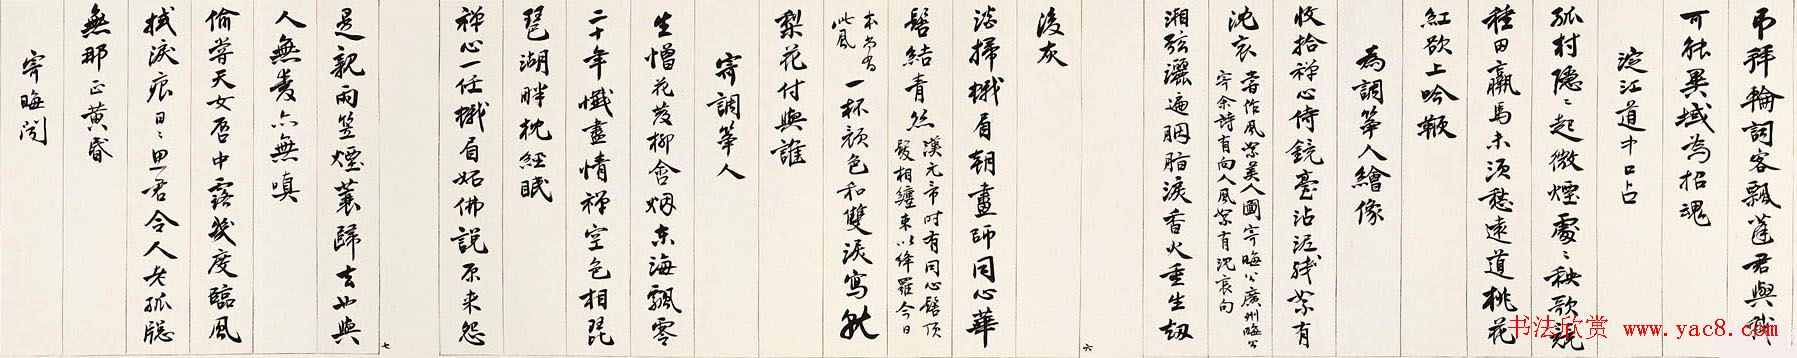 弔拜輪詞客飄蓬君與我
可能異域為招魂
淀江道中口占
孤村隱〻起微煙處〻秧歌競
種田羸馬未須愁遠道桃花
紅欲上吟鞭
為調箏人繪像
收拾禪心侍鏡臺沾泥殘絮有
沈哀 曾作風絮美人圖寄晦公廣州晦公
寄余詩有向人風絮有沈哀句
湘弦灑遍胭脂淚香火重生劫
六
後灰
淡掃蛾眉朝畫師同心華
髻結青絲 漢元帝時有同心髻頂
髮相纏束以絳羅今日
本尚有
此風 一杯顏色和雙淚寫就
梨花付與誰
寄調箏人
生憎花發柳含烟東海飄零
二十年懺盡情禪空色相琵
琶湖畔枕經眠
禪心一任蛾眉妒佛說原來怨
七
是親雨笠煙蓑歸去也與
人無愛亦無嗔
偷嘗天女唇中露幾度臨風
拭淚痕日〻思君令人老孤窗
無那正黃昏
寄晦聞
书法欣赏 www.yac8.com